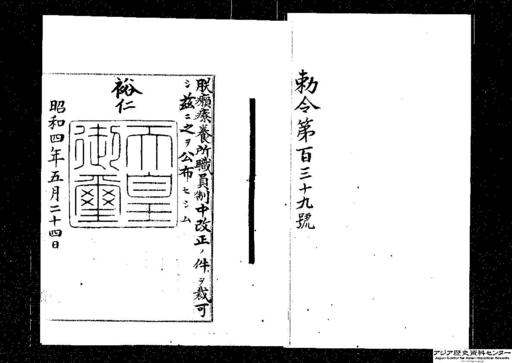 勅令第百三十九號
朕癩療養所職員制中改正ノ件ヲ裁可
シ茲ニ之ヲ公布セシム
裕仁
天皇御璽
昭和四年五月二十四日
アジア歴史資料センター
Japan Center for Asian Historical Records